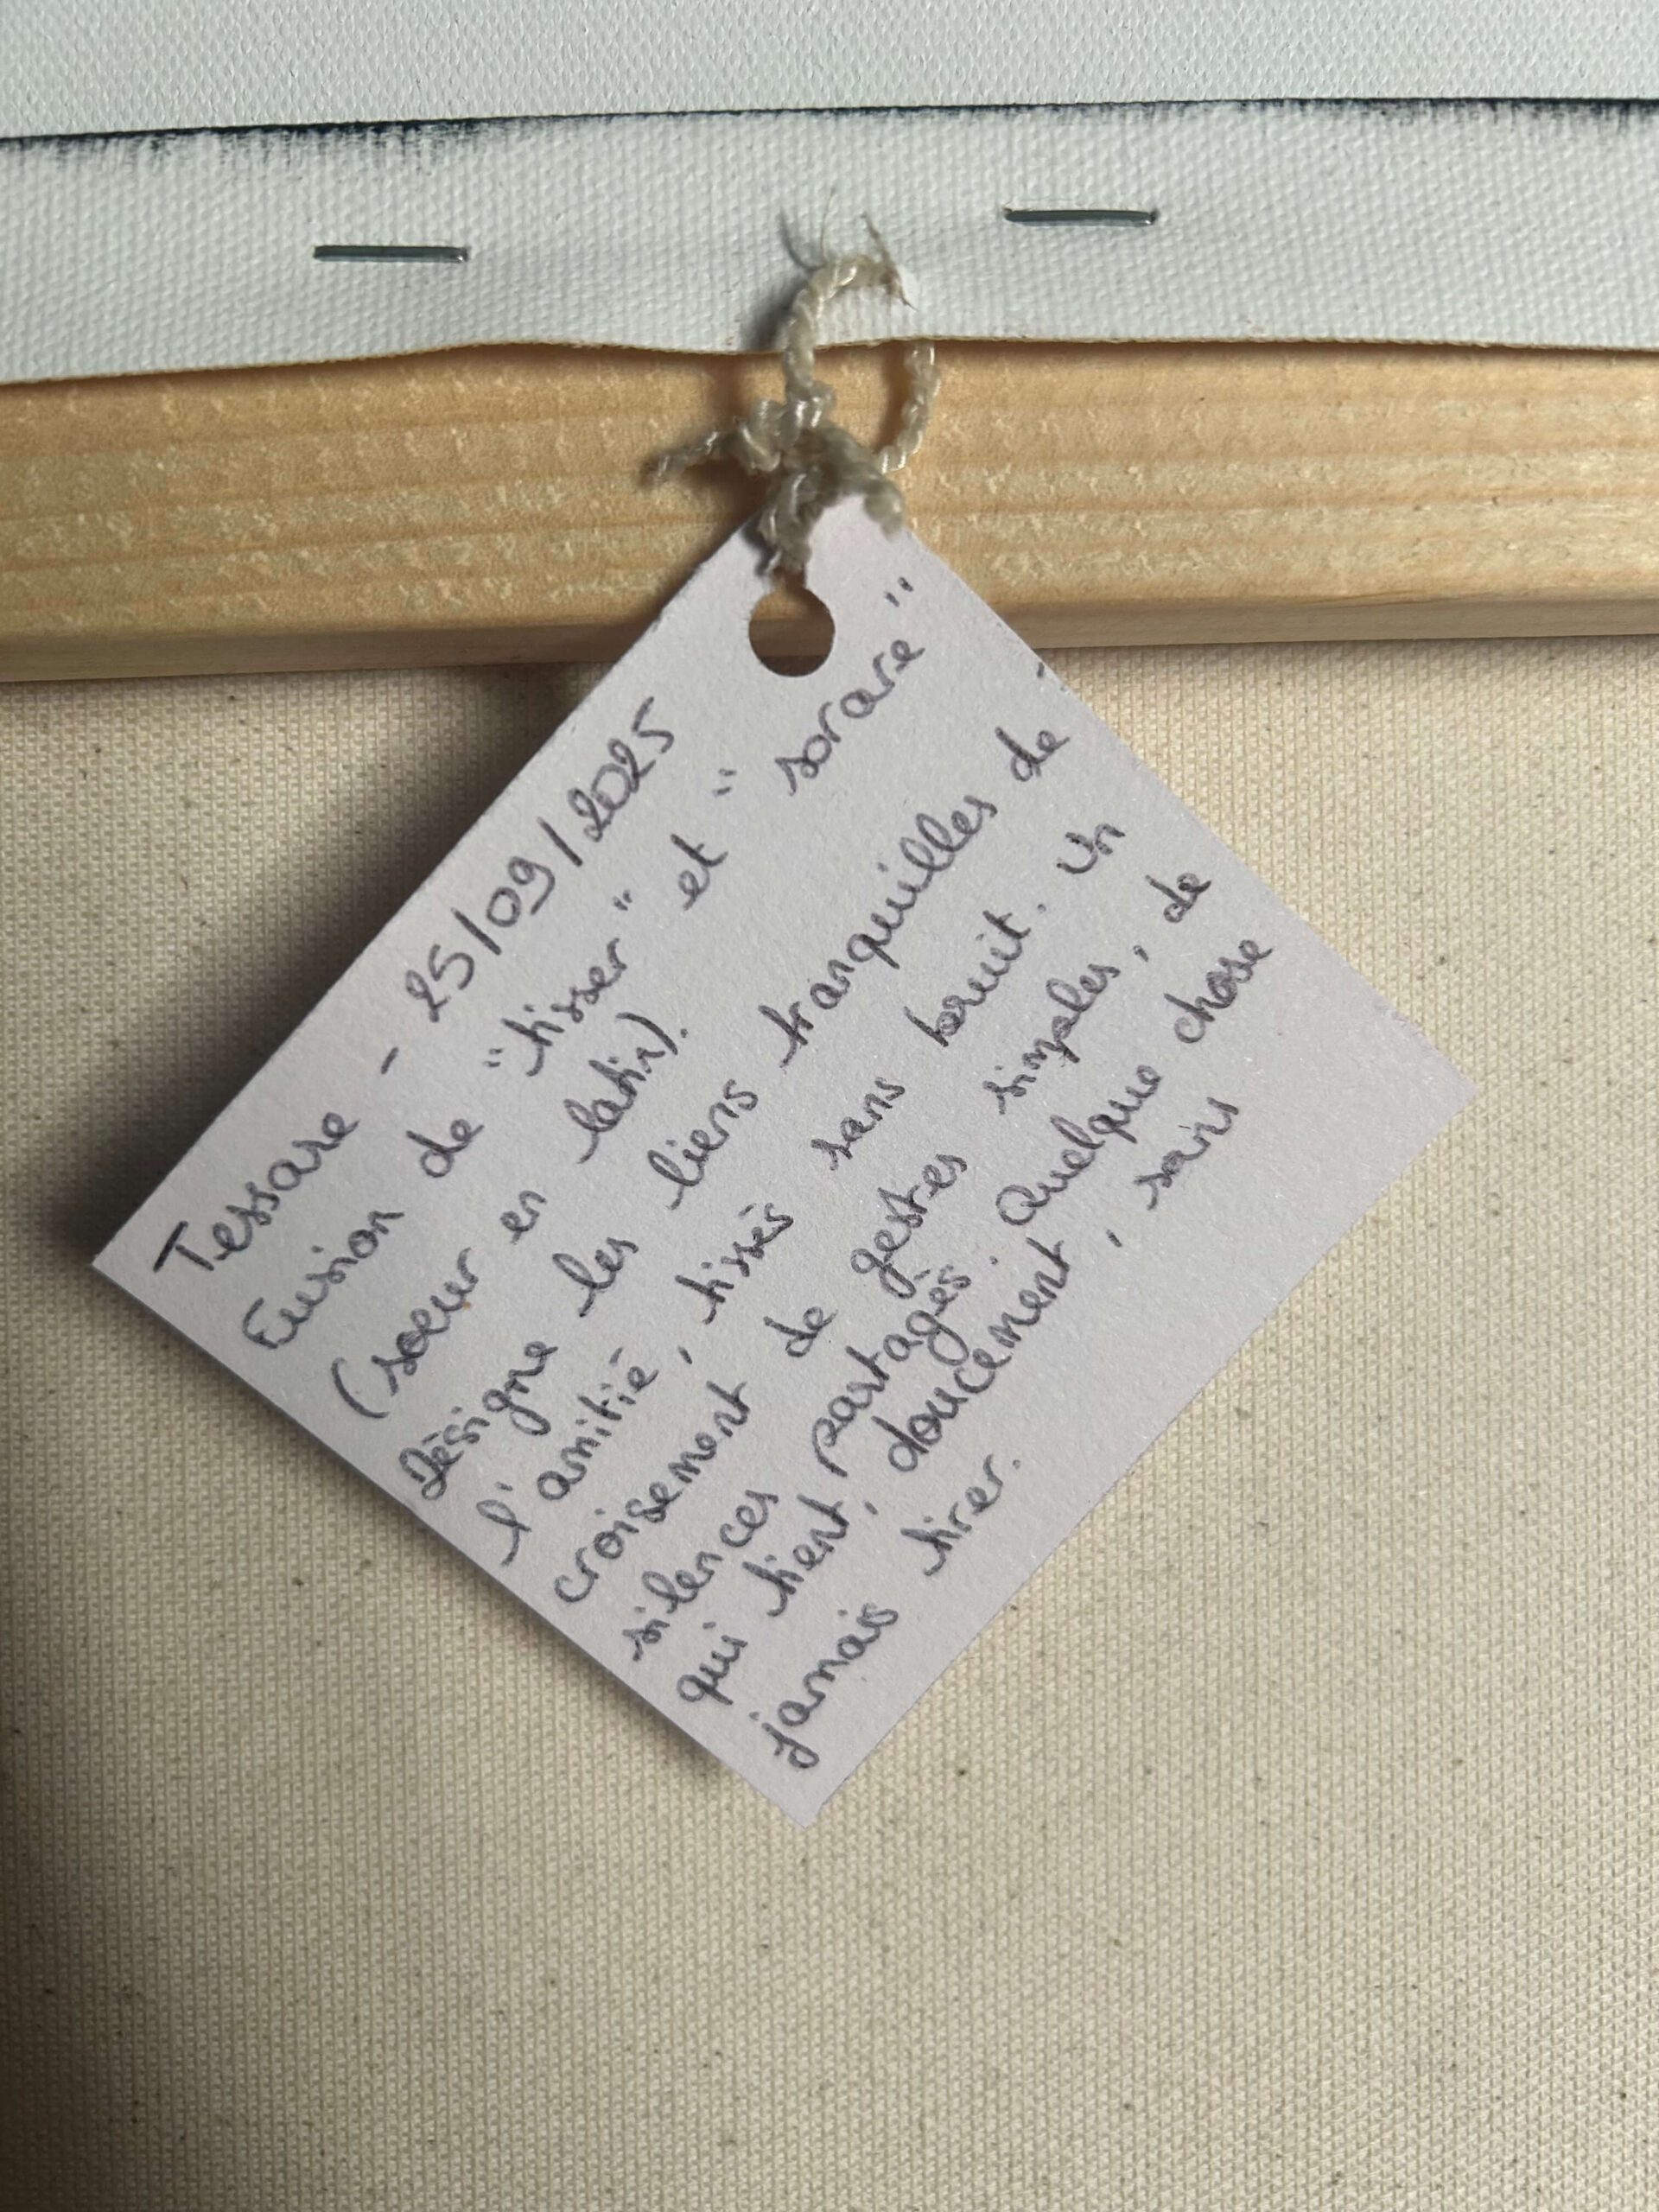 Tessare - 25/09/2025
Fusion de "tisser" et "sorare"
(soeur en latin).
Désigne les liens tranquilles de
l'amitié, tissés sans bruit. Un
croisement de gestes simples, de
silences partagés. Quelque chose
qui tient, doucement, sans
jamais tirer.